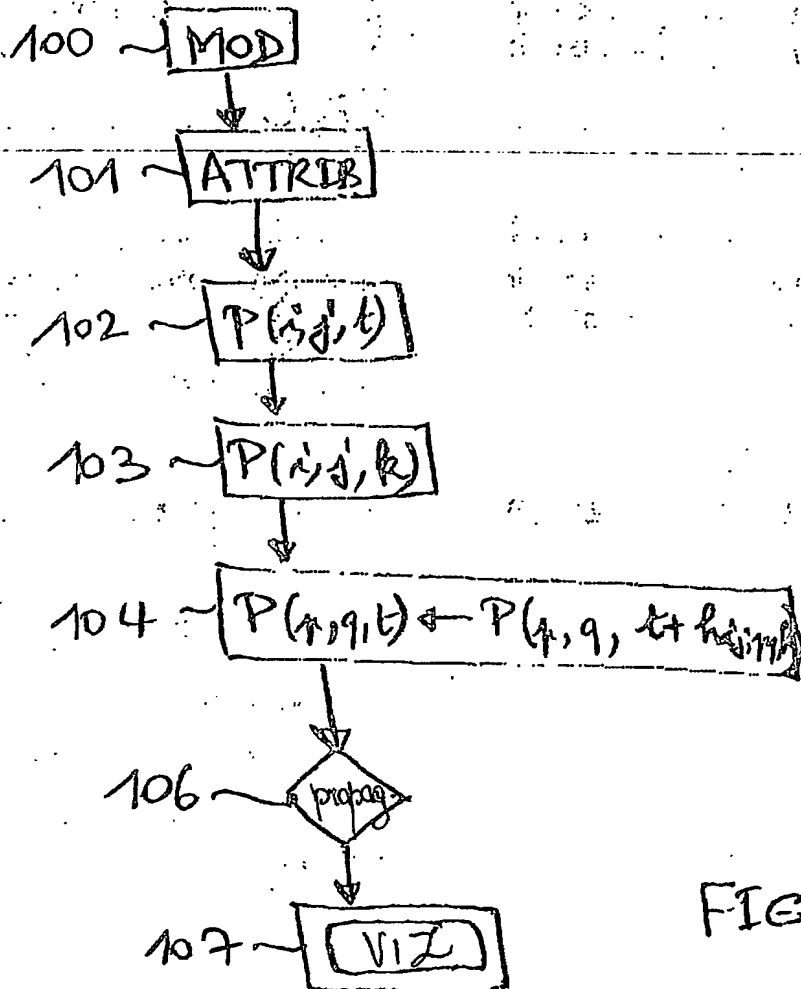 100 MOD
101 ATTRIB
102 P(i,j,t)
103 P(i,j,k)
104 P(p,q,t) ← P(p,q, t+
106 propag
107 VIZ
FIG